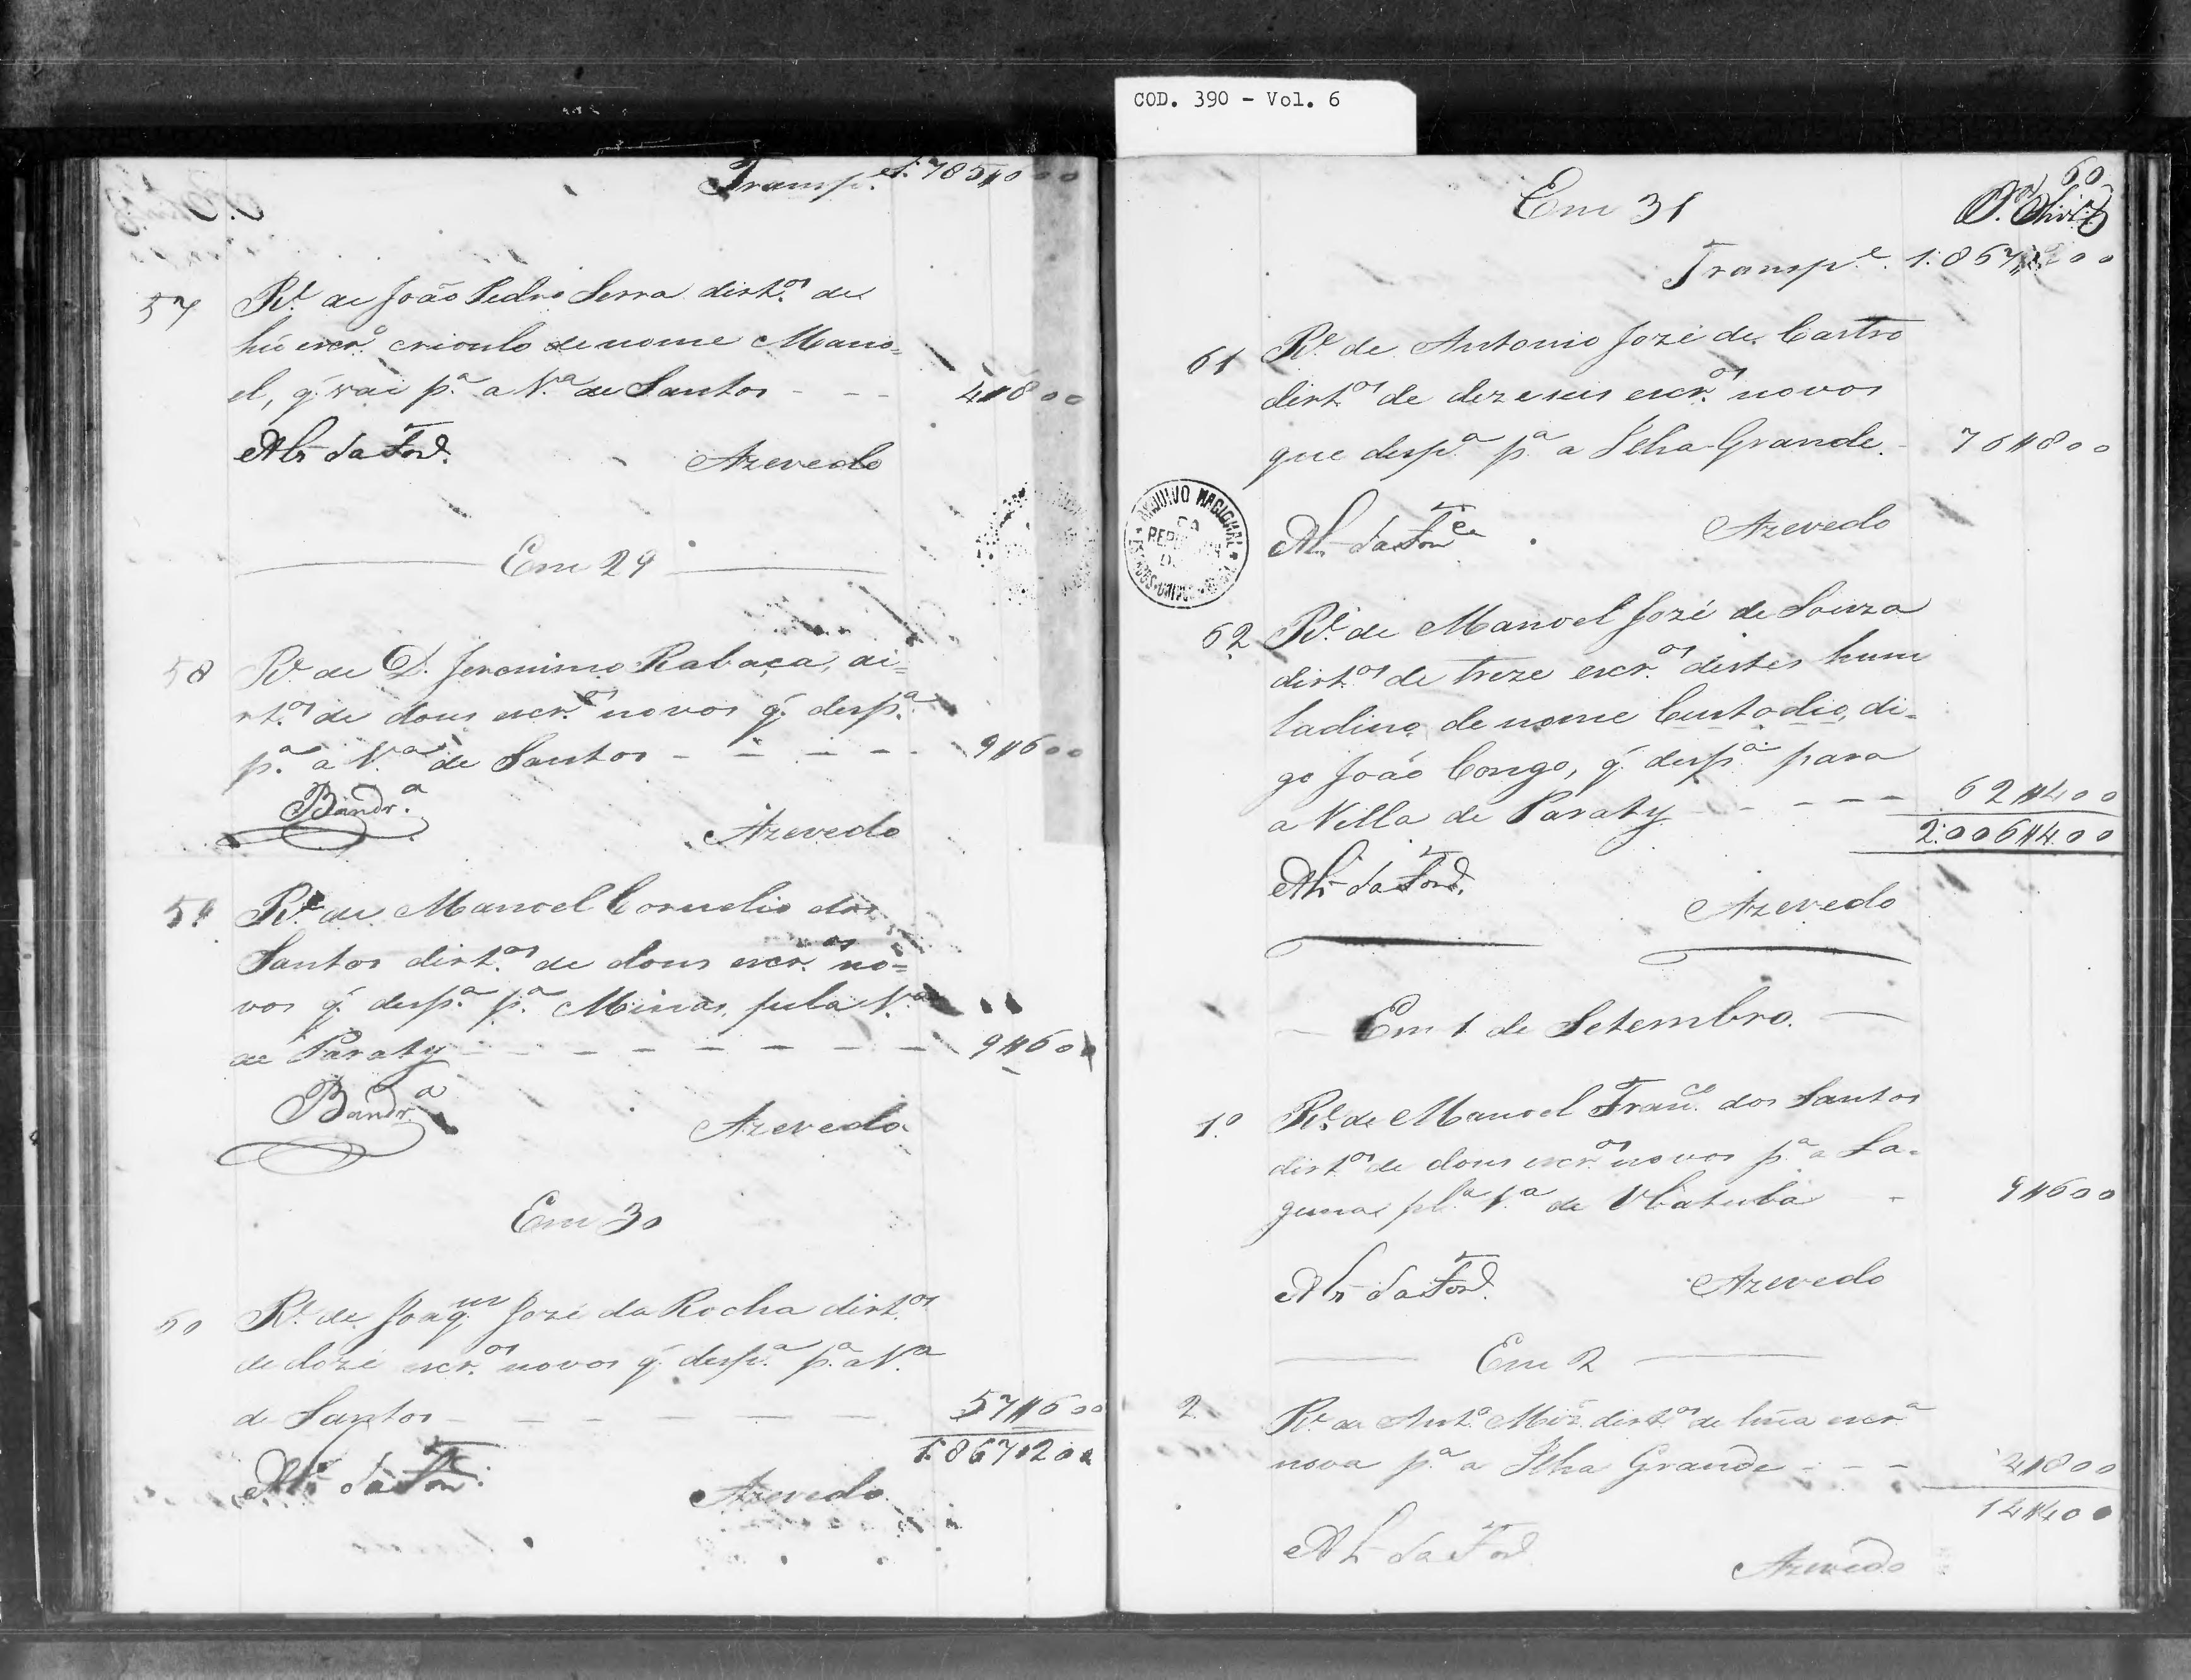 COD. 390 - Vol. 6
Transp.e 1:785$000
57 R.e de João Pedro Serra dirt.os de
hú escr.o crioulo de nome Mano=
el, q' vai p.a a V.a de Santos - - - 4$800
Alz da Fon.ca Azevedo
Em 29
58 R.e de D. Jeronimo Rabaça, di=
rt.os de dous escr.os novos q' desp.a
p.a a V.a de Santos - - - - - 9$600
Bandr.a
Azevedo
59 R.e de Manoel Cornelio dos
Santos dirt.os de dous escr.os no=
vos q' desp.a p.a Minas, pela V.a
de Paraty - - - - - - - - - 9$600
Bandr.a
Azevedo
Em 30
60 R.e de Joaq.m José da Rocha dirt.os
de doze escr.os novos q' desp.a p.a a V.a
de Santos - - - - - - 57$600
1:867$200
Alz da Fon.ca
Azevedo
60
Em 31
Transp.e 1:867$200
61 R.e de Antonio José de Castro
dirt.os de dezeseis escr.os novos
que desp.a p.a a Ilha Grande. - 76$800
ARQUIVO NACIONAL
Alz da Fon.ca Azevedo
62 R.e de Manoel José de Souza
dirt.os de treze escr.os destes hum
ladino de nome Custodio, di=
go João Congo, q' desp.a para
a Villa de Paraty - - - - - 62$400
2:006$400
Alz da Fon.ca
Azevedo
Em 1 de Setembro.
1.o R.e de Manoel Fran.co dos Santos
dirt.os de dous escr.os novos p.a a La=
guna pl.a V.a de Ubatuba - 9$600
Alz da Fon.ca Azevedo
Em 2
2 R.e de Ant.o Miz dirt.os de húa escr.a
nova p.a a Ilha Grande - - - 4$800
14$400
Alz da Fon.ca
Azevedo